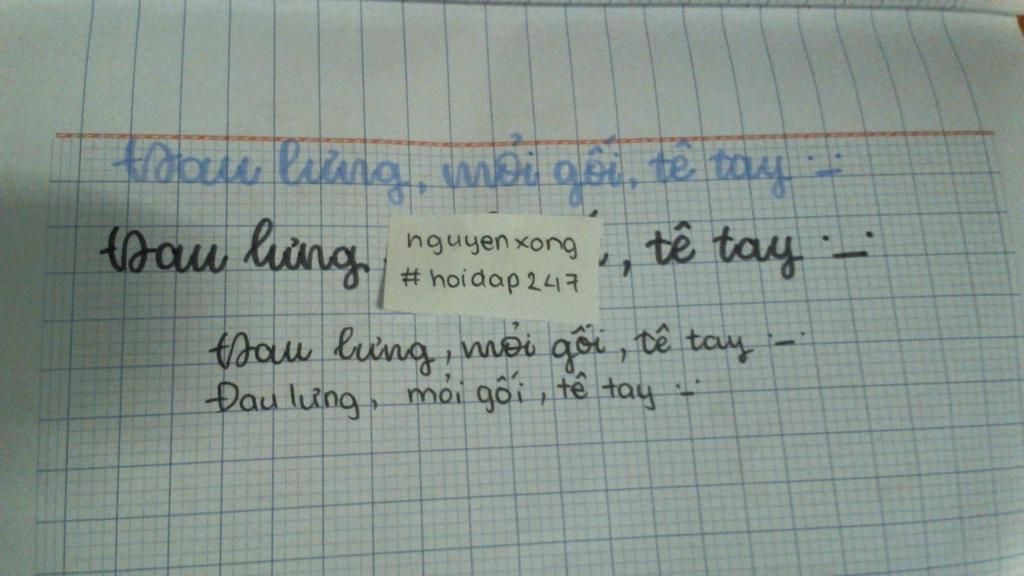 Đau lưng, mỏi gối, tê tay :-
Đau lưng , tê tay :-
nguyenxong
#hoidap247
Đau lưng, mỏi gối, tê tay :-
Đau lưng, mỏi gối, tê tay :-